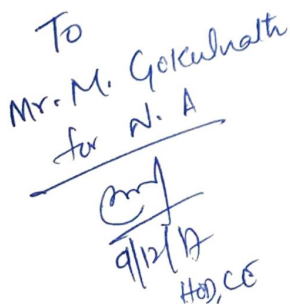 To
Mr. M. Gokulnath
for N. A
9/12/17
HOD, CE